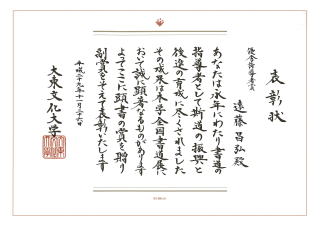 表彰状
優秀指導者賞
遠藤昌弘殿
あなたは永年にわたり書道の
指導者として斯道の振興と
後進の育成に尽くされました
その成果は本学全国書道展に
おいて誠に顕著なるものがあります
よってここに顕書の賞を贈り
副賞をそえて表彰いたします
平成二十六年十一月二十六日
大東文化大学